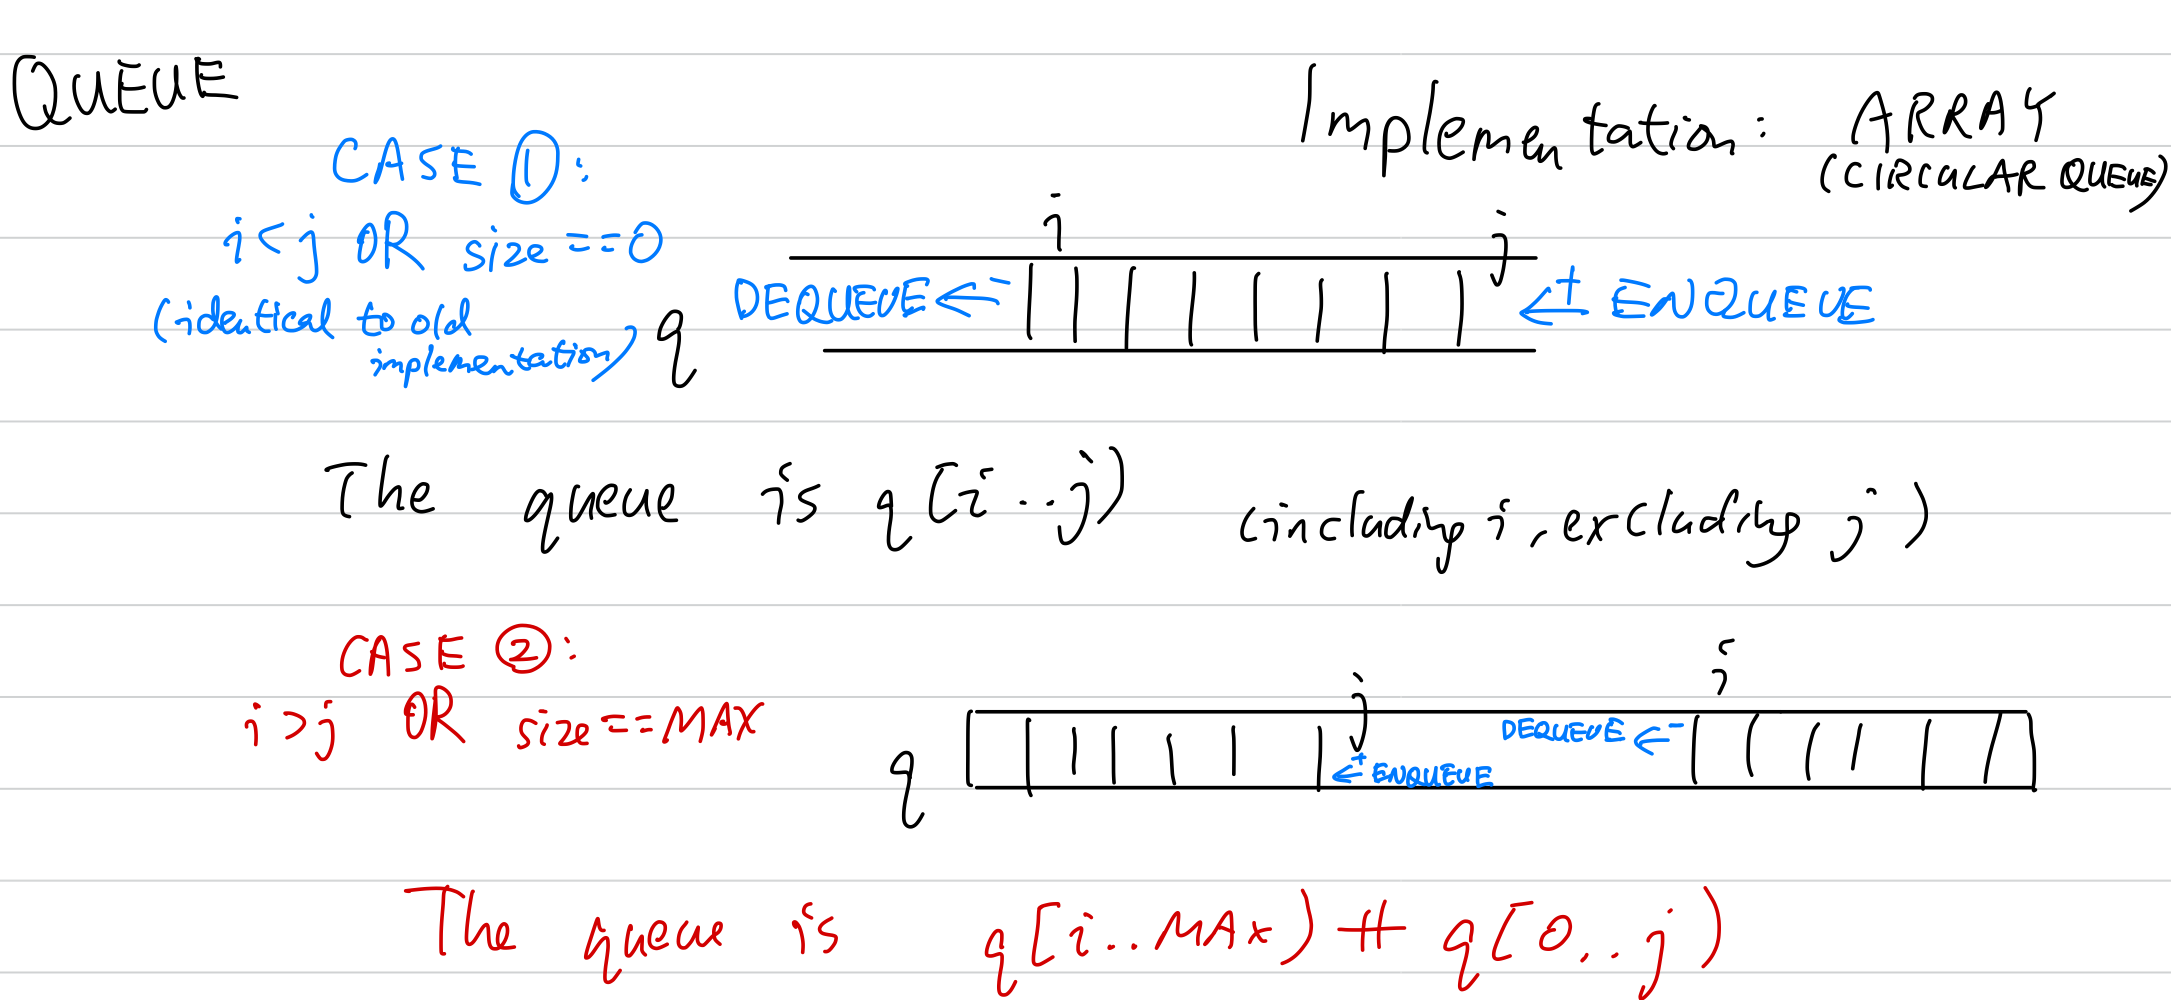 QUEUE
Implementation: ARRAY
(CIRCULAR QUEUE)
CASE ①:
i<j OR size==0
(identical to old
implementation)
i j
q DEQUEUE ← - + ← ENQUEUE
The queue is q[i..j) (including i, excluding j)
CASE ②:
i>j OR size==MAX
j i
q ← + ENQUEUE DEQUEUE ← -
The queue is q[i..MAX) ++ q[0..j)